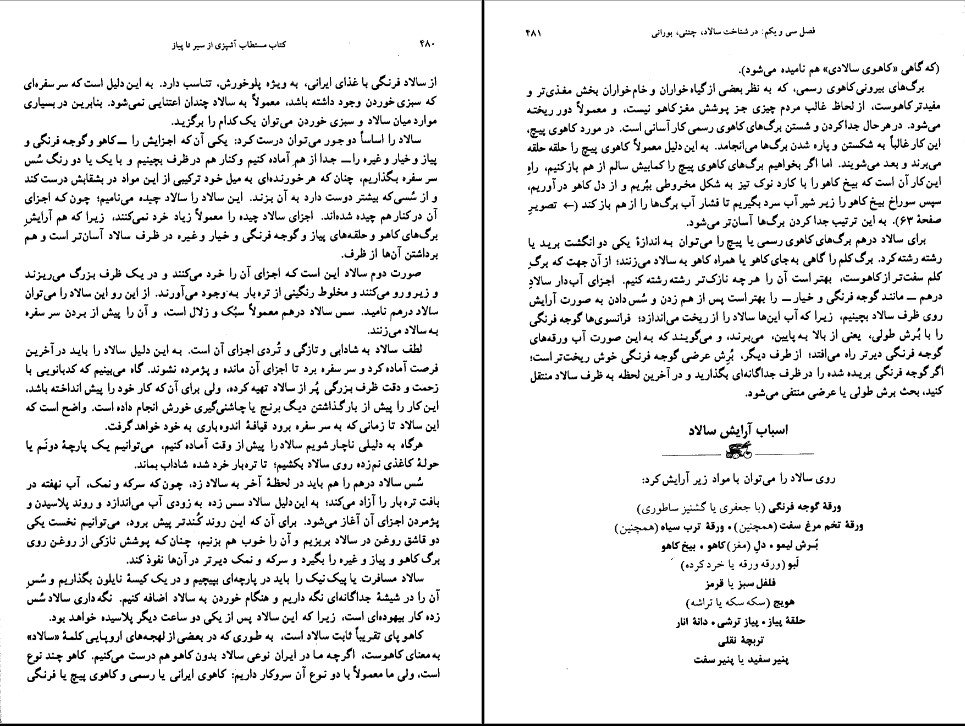 کتاب مستطاب آشپزی از سیر تا پیاز
۴۸۰
از سالاد فرنگی با غذای ایرانی، به ویژه پلوخورش، تناسب دارد. به این دلیل است که سر سفره‌ای
که سبزی خوردن وجود داشته باشد، معمولاً به سالاد چندان اعتنایی نمی‌شود. بنابرین در بسیاری
موارد میان سالاد و سبزی خوردن می‌توان یک کدام را برگزید.
سالاد را اساساً دو جور می‌توان درست کرد: یکی آن که اجزایش را ــ کاهو و گوجه فرنگی و
پیاز و خیار و غیره را ــ جدا از هم آماده کنیم و کنار هم در ظرف بچینیم و با یک یا دو رنگ سُس
سر سفره بگذاریم، چنان که هر خورنده‌ای به میل خود ترکیبی از این مواد در بشقابش درست کند
و از سُسی که بیشتر دوست دارد به آن بزند. این سالاد را سالاد چیده می‌نامیم؛ چون که اجزای
آن در کنار هم چیده شده‌اند. اجزای سالاد چیده را معمولاً زیاد خرد نمی‌کنند، زیرا که هم آرایش
برگ‌های کاهو و حلقه‌های پیاز و گوجه فرنگی و خیار و غیره در ظرف سالاد آسان‌تر است و هم
برداشتن آن‌ها از ظرف.
صورت دوم سالاد این است که اجزای آن را خرد می‌کنند و در یک ظرف بزرگ می‌ریزند
و زیر و رو می‌کنند و مخلوط رنگینی از تره‌بار به وجود می‌آورند. از این رو این سالاد را می‌توان
سالاد درهم نامید. سس سالاد درهم معمولاً سبُک و زلال است، و آن را پیش از بردن سر سفره
به سالاد می‌زنند.
لطف سالاد به شادابی و تازگی و تُردی اجزای آن است. به این دلیل سالاد را باید در آخرین
فرصت آماده کرد و سر سفره برد تا اجزای آن مانده و پژمرده نشوند. گاه می‌بینیم که کدبانویی با
زحمت و دقت ظرف بزرگی پُر از سالاد تهیه کرده، ولی برای آن که کار خود را پیش انداخته باشد،
این کار را پیش از بار گذاشتن دیگ برنج یا چاشنی‌گیری خورش انجام داده است. واضح است که
این سالاد تا زمانی که به سر سفره برود قیافهٔ اندوه‌باری به خود خواهد گرفت.
هرگاه به دلیلی ناچار شویم سالاد را پیش از وقت آماده کنیم، می‌توانیم یک پارچهٔ دونَم یا
حولهٔ کاغذی نم‌زده روی سالاد بکشیم؛ تا تره‌بار خرد شده شاداب بماند.
سُس سالاد درهم را هم باید در لحظهٔ آخر به سالاد زد، چون که سرکه و نمک، آب نهفته در
بافت تره‌بار را آزاد می‌کند؛ به این دلیل سالاد سس زده به زودی آب می‌اندازد و روند پلاسیدن و
پژمردن اجزای آن آغاز می‌شود. برای آن که این روند کُندتر پیش برود، می‌توانیم نخست یکی
دو قاشق روغن در سالاد بریزیم و آن را خوب هم بزنیم، چنان که پوشش نازکی از روغن روی
برگ کاهو و پیاز و غیره را بگیرد و سرکه و نمک دیرتر در آن‌ها نفوذ کند.
سالاد مسافرت یا پیک نیک را باید در پارچه‌ای بپیچیم و در یک کیسهٔ نایلون بگذاریم و سُس
آن را در شیشهٔ جداگانه‌ای نگه داریم و هنگام خوردن به سالاد اضافه کنیم. نگه‌داری سالاد سُس
زده کار بیهوده‌ای است، زیرا که این سالاد پس از یکی دو ساعت دیگر پلاسیده خواهد بود.
کاهو پای تقریباً ثابت سالاد است، به طوری که در بعضی از لهجه‌های اروپایی کلمهٔ «سالاد»
به معنای کاهوست، اگرچه ما در ایران نوعی سالاد بدون کاهو هم درست می‌کنیم. کاهو چند نوع
است، ولی ما معمولاً با دو نوع آن سروکار داریم: کاهوی ایرانی یا رسمی و کاهوی پیچ یا فرنگی
فصل سی و یکم: در شناخت سالاد، چتنی، بورانی
۴۸۱
(که گاهی «کاهوی سالادی» هم نامیده می‌شود).
برگ‌های بیرونی کاهوی رسمی، که به نظر بعضی از گیاه خواران و خام خواران بخش مغذی‌تر و
مفیدتر کاهوست، از لحاظ غالب مردم چیزی جز پوشش مغز کاهو نیست، و معمولاً دور ریخته
می‌شود. در هر حال جدا کردن و شستن برگ‌های کاهوی رسمی کار آسانی است. در مورد کاهوی پیچ،
این کار غالباً به شکستن و پاره شدن برگ‌ها می‌انجامد. به این دلیل معمولاً کاهوی پیچ را حلقه حلقه
می‌برند و بعد می‌شویند. اما اگر بخواهیم برگ‌های کاهوی پیچ را کمابیش سالم از هم باز کنیم، راهِ
این کار آن است که بیخ کاهو را با کارد نوک تیز به شکل مخروطی ببُریم و از دل کاهو در آوریم،
سپس سوراخ بیخ کاهو را زیر شیر آب سرد بگیریم تا فشار آب برگ‌ها را از هم باز کند (← تصویرِ
صفحهٔ ۶۳). به این ترتیب جدا کردن برگ‌ها آسان‌تر می‌شود.
برای سالاد درهم برگ‌های کاهوی رسمی یا پیچ را می‌توان به اندازهٔ یکی دو انگشت برید یا
رشته رشته کرد. برگ کلم را گاهی به‌جای کاهو یا همراه کاهو به سالاد می‌زنند؛ از آن جهت که برگِ
کلم سفت‌تر از کاهوست، بهتر است آن را هر چه نازک‌تر رشته رشته کنیم. اجزای آب‌دار سالادِ
درهم ــ مانند گوجه فرنگی و خیار ــ را بهتر است پس از هم زدن و سُس دادن به صورت آرایش
روی ظرف سالاد بچینیم، زیرا که آب این‌ها سالاد را از ریخت می‌اندازد؛ فرانسوی‌ها گوجه فرنگی
را با بُرش طولی، یعنی از بالا به پایین، می‌برند، و می‌گویند که به این صورت آب ورقه‌های
گوجه فرنگی دیرتر راه می‌افتد؛ از طرف دیگر، بُرش عرضی گوجه فرنگی خوش ریخت‌تر است؛
اگر گوجه فرنگی بریده شده را در ظرف جداگانه‌ای بگذارید و در آخرین لحظه به ظرف سالاد منتقل
کنید، بحث برش طولی یا عرضی منتفی می‌شود.
اسباب آرایش سالاد
روی سالاد را می‌توان با مواد زیر آرایش کرد:
ورقهٔ گوجه فرنگی (با جعفری یا گشنیز ساطوری)
ورقهٔ تخم مرغ سفت (همچنین) • ورقهٔ ترب سیاه (همچنین)
بُرش لیمو • دلِ (مغز) کاهو • بیخ کاهو
لَبو (ورقه ورقه یا خرد کرده)
فلفل سبز یا قرمز
هویج (سکه سکه یا تراشه)
حلقهٔ پیاز • پیاز ترشی • دانهٔ انار
تربچهٔ نقلی
پنیر سفید یا پنیر سفت